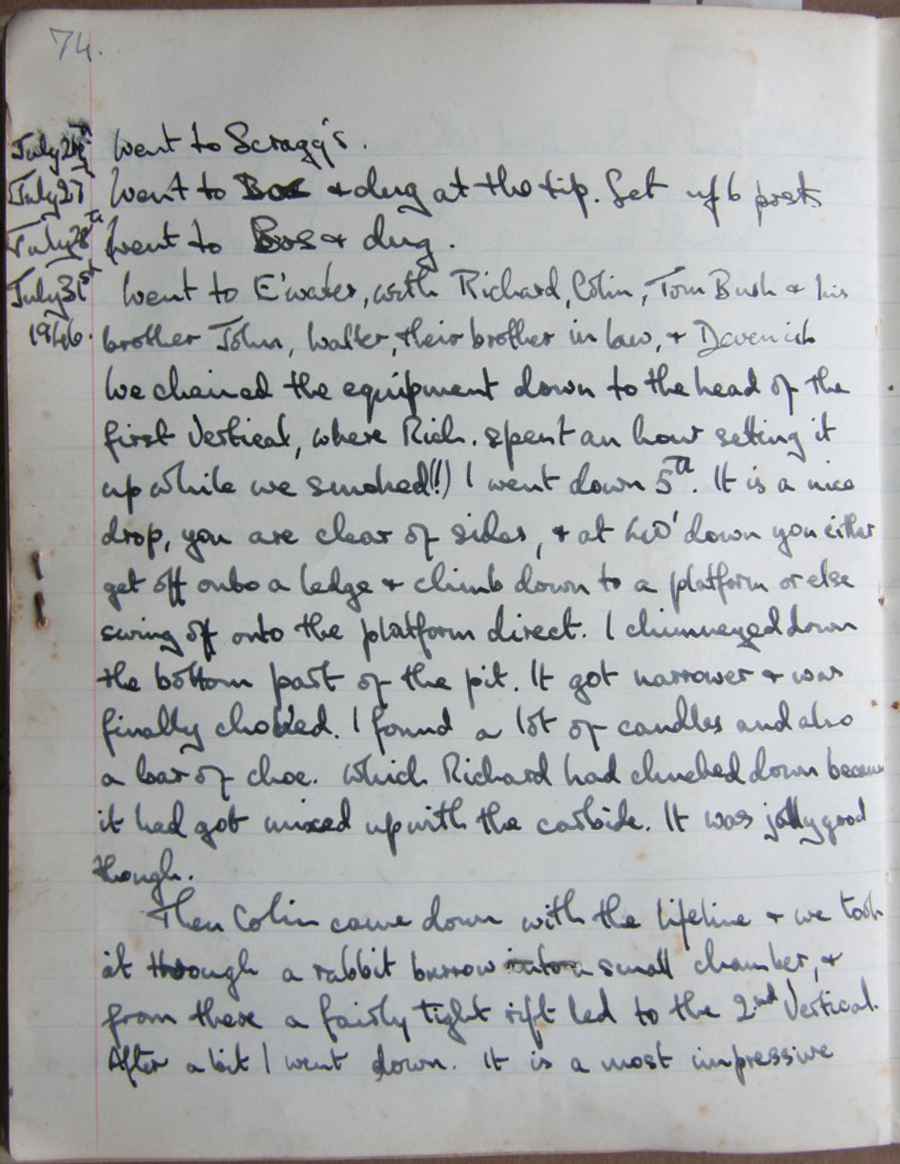 74.
July 26th Went to Scragg's.
July 27 Went to Bos & dug at the tip. Set up 6 posts
July 28th Went to Bos & dug.
July 31st Went to E'water, with Richard, Colin, Tom Bush & his
1946. brother John, Walter, their brother in law, & Devenish
We chained the equipment down to the head of the
first Vertical, where Rich. spent an hour setting it
up while we smoked!!) I went down 5th. It is a nice
drop, you are clear of sides, & at 40' down you either
get off onto a ledge & climb down to a platform or else
swing off onto the platform direct. I chimneyed down
the bottom part of the pit. It got narrower & was
finally choked. I found a lot of candles and also
a bar of choc. which Richard had chucked down because
it had got mixed up with the carbide. It was jolly good
though.
Then Colin came down with the lifeline & we took
it through a rabbit burrow into a small chamber, &
from there a fairly tight rift led to the 2nd Vertical.
After a bit I went down. It is a most impressive